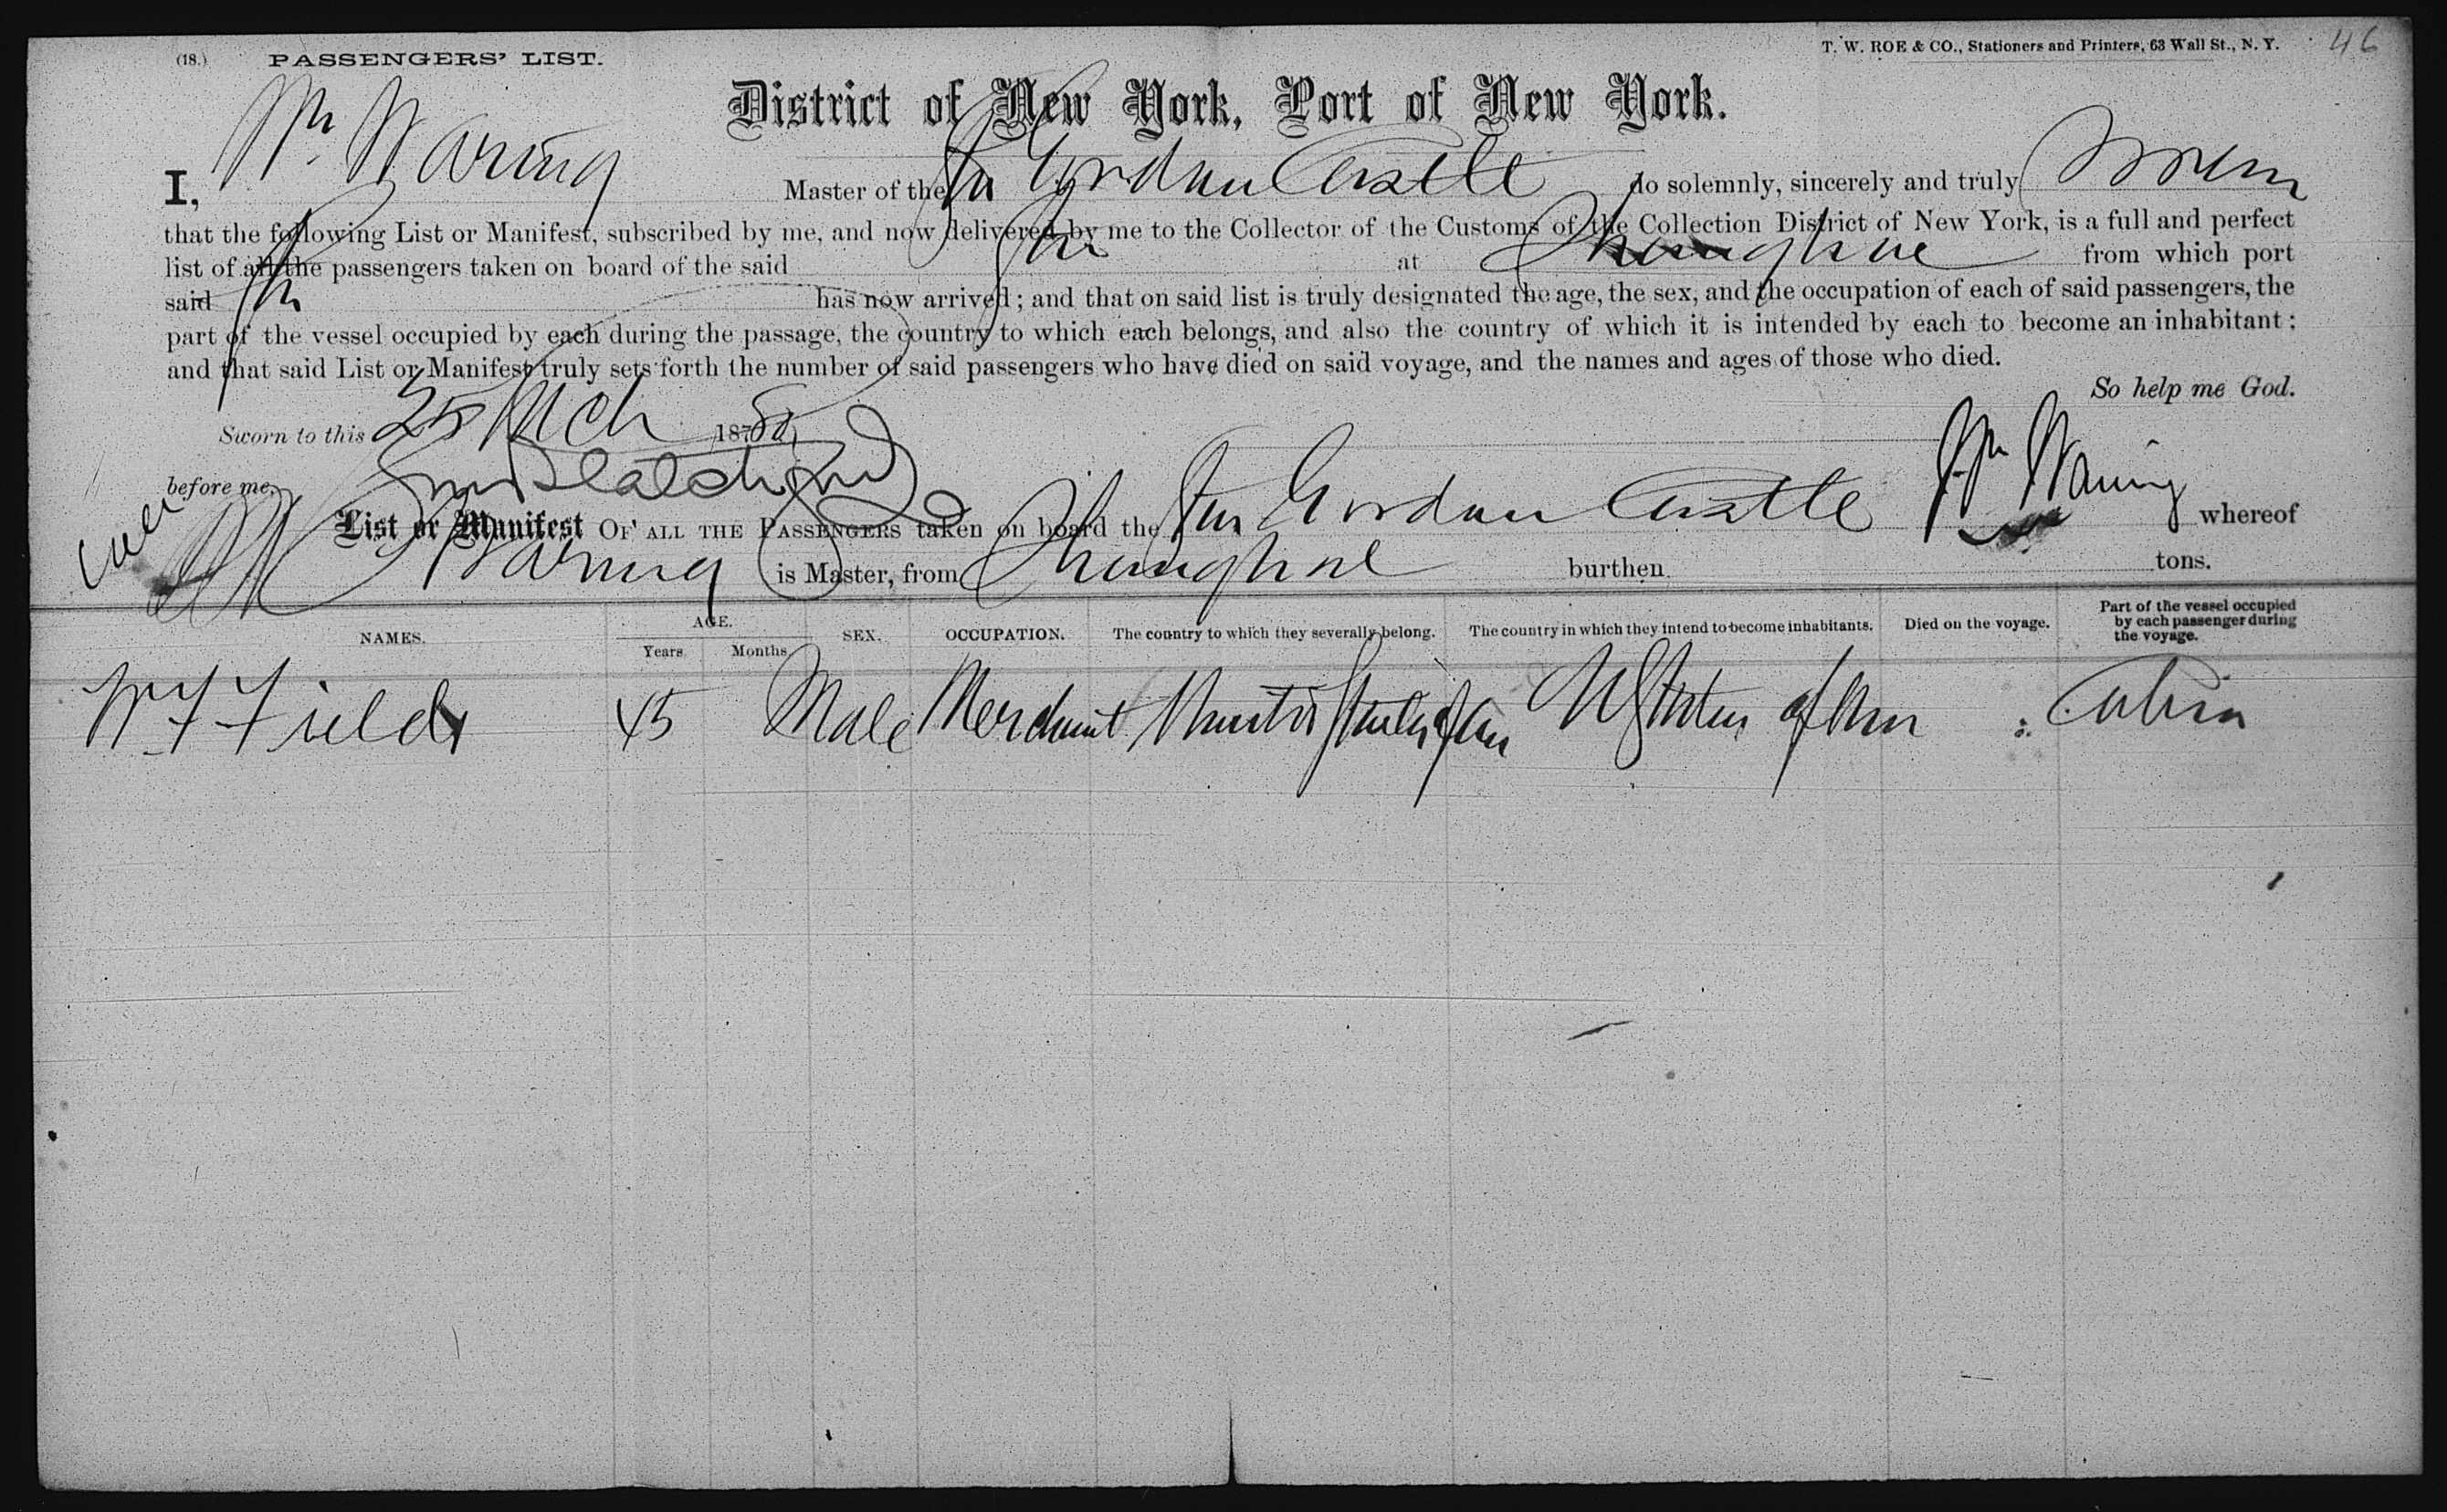 (18.) PASSENGERS' LIST. T. W. ROE & CO., Stationers and Printers, 63 Wall St., N. Y. 46
District of New York, Port of New York.
I, Wm Waring Master of the Str Gordon Castle do solemnly, sincerely and truly swear
that the following List or Manifest, subscribed by me, and now delivered by me to the Collector of the Customs of the Collection District of New York, is a full and perfect
list of all the passengers taken on board of the said Str at Shanghae from which port
said Str has now arrived; and that on said list is truly designated the age, the sex, and the occupation of each of said passengers, the
part of the vessel occupied by each during the passage, the country to which each belongs, and also the country of which it is intended by each to become an inhabitant;
and that said List or Manifest truly sets forth the number of said passengers who have died on said voyage, and the names and ages of those who died.
So help me God.
Sworn to this 25 Mch 1880
before me, Wm Waring
List or Manifest OF ALL THE PASSENGERS taken on board the Str Gordon Castle whereof
Waring is Master, from Shanghae burthen tons.
NAMES. AGE. Years Months SEX. OCCUPATION. The country to which they severally belong. The country in which they intend to become inhabitants. Died on the voyage. Part of the vessel occupied by each passenger during the voyage.
W F Field 45 Male Merchant United States of Am U States of Am Cabin